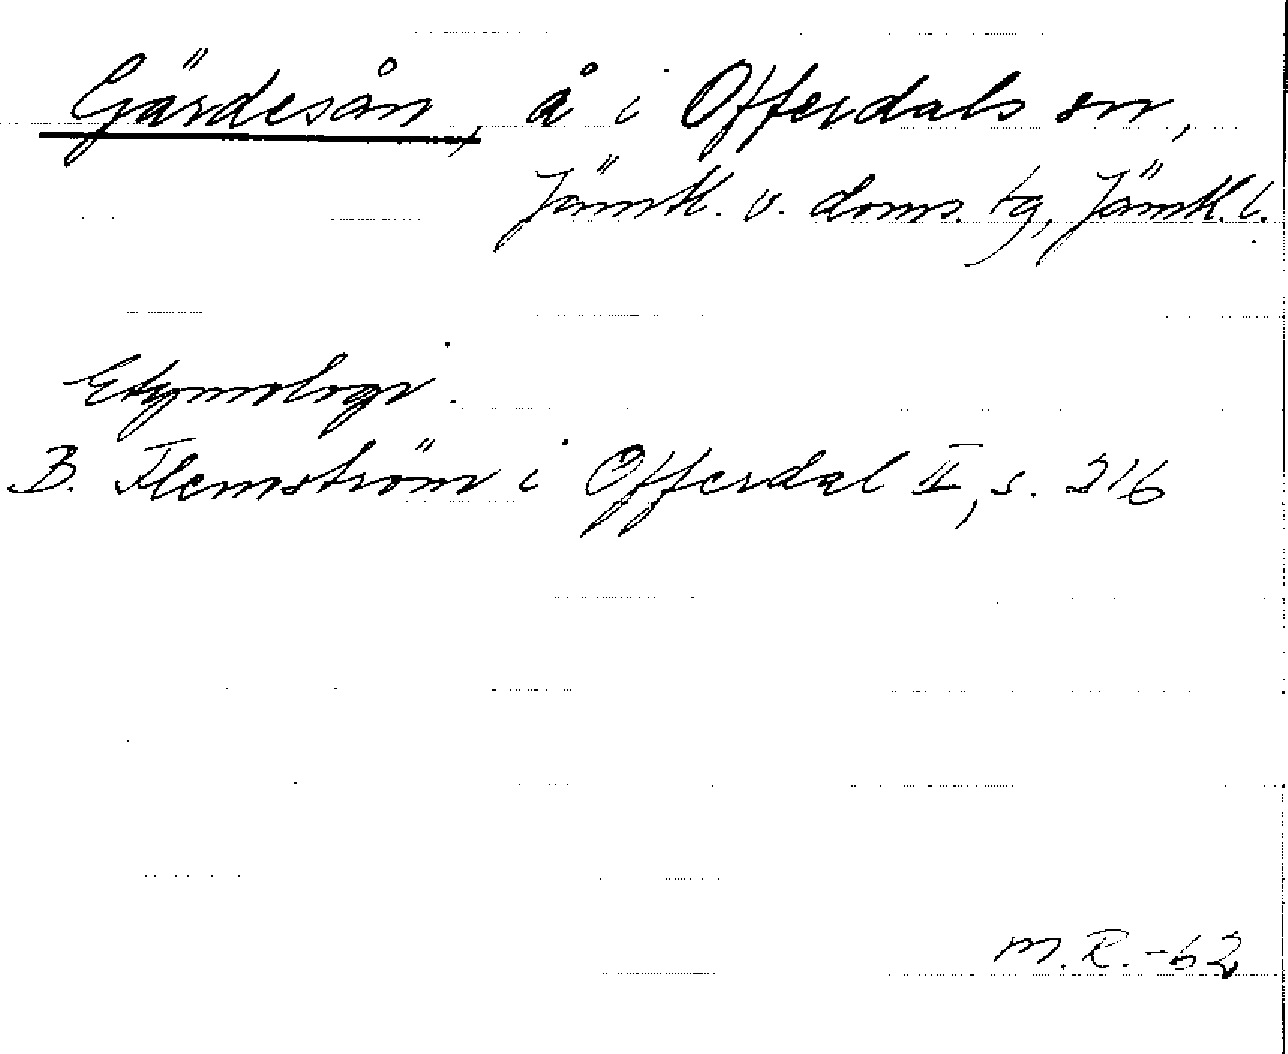 Gärdesån, å i Offerdals sn,
Jämtl. v. doms. tg, Jämtl. l.
Etymologi.
B. Flemström i Offerdal II, s. 216
M.R.-62